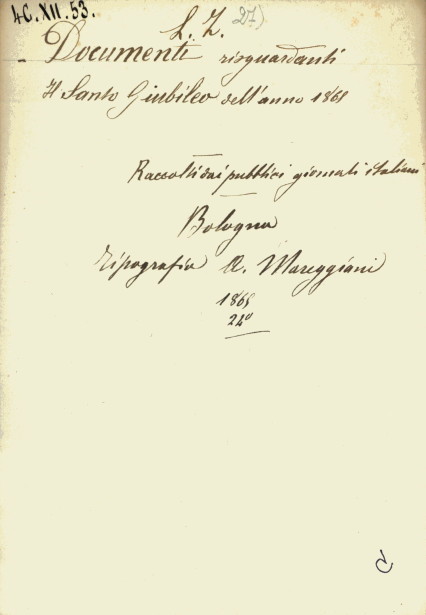 4C.XII.53.
L. Z. 27)
Documenti risguardanti
Il Santo Giubileo dell'anno 1869
Raccolti dai pubblici giornali italiani
Bologna
Tipografia A. Mareggiani
1869
24°